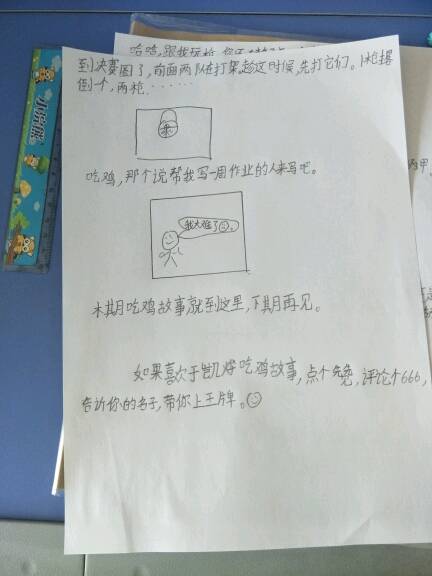 哈哈,跟我玩枪,您还
到决赛圈了,前面两队在打架,趁这时候,先打它们。1枪撂
倒一个,两枪......
我
吃鸡,那个说帮我写一周作业的人来写吧。
我太难了
本期吃鸡故事,就到这里,下期再见。
如果喜欢于凯烨吃鸡故事,点个免免,评论个666,
告诉你的名子,带你上王牌。
小浣熊